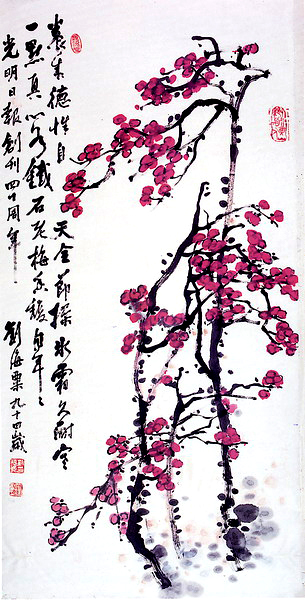 養成德性自天全節操冰霜久耐寒
一點真心如鐵石老梅年年
光明日報創刊四十周年
劉海粟九十四歲